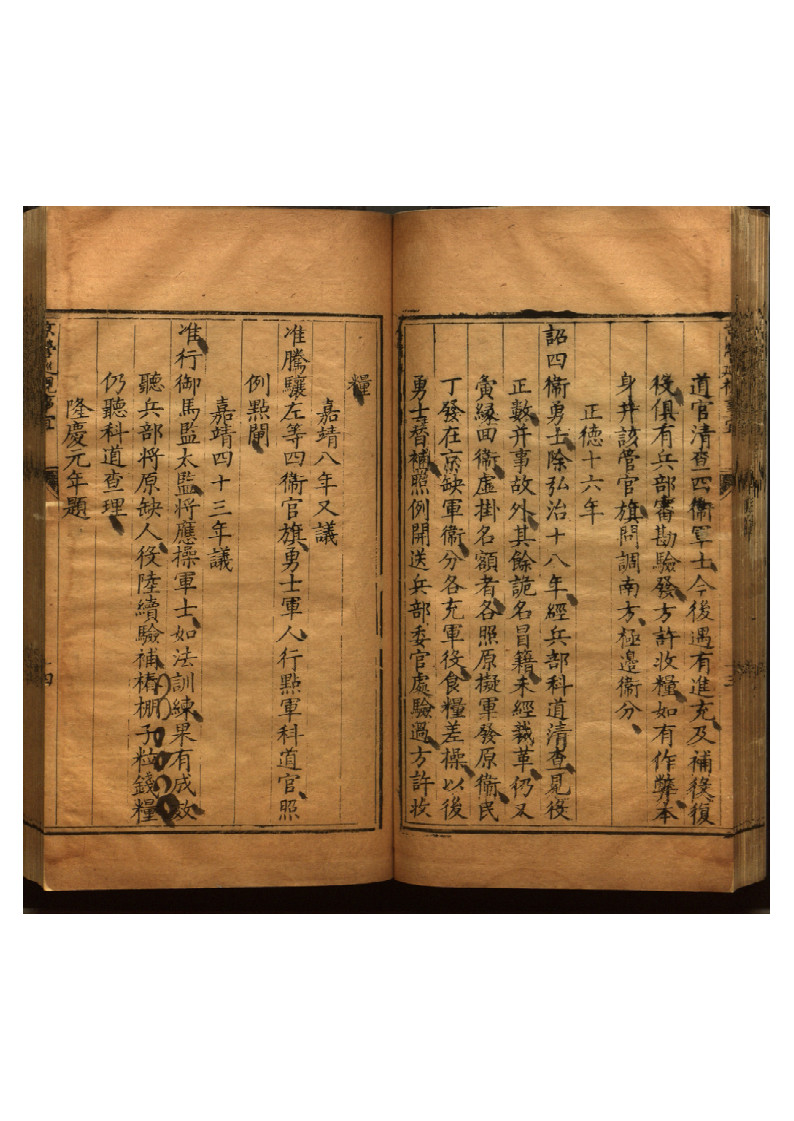 道官清查四衞軍士今後遇有進充及補役復
役俱有兵部審勘驗發方許收糧如有作弊本
身并該管官旗問調南方極邊衞分
正德十六年
詔四衞勇士除弘治十八年經兵部科道清查見役
正數并事故外其餘詭名冒籍未經裁革仍又
寅緣回衞虛掛名額者各照原擬軍發原衞民
丁發在京缺軍衞分各充軍役食糧差操以後
勇士替補照例開送兵部委官處驗過方許收
三
糧
嘉靖八年又議
准騰驤左等四衞官旗勇士軍人行點軍科道官照
例點閘
嘉靖四十三年議
准行御馬監太監將應操軍士如法訓練果有成效
聽兵部將原缺人役陸續驗補椿棚子粒錢糧
仍聽科道查理
隆慶元年題
京營巡視事宜
十四